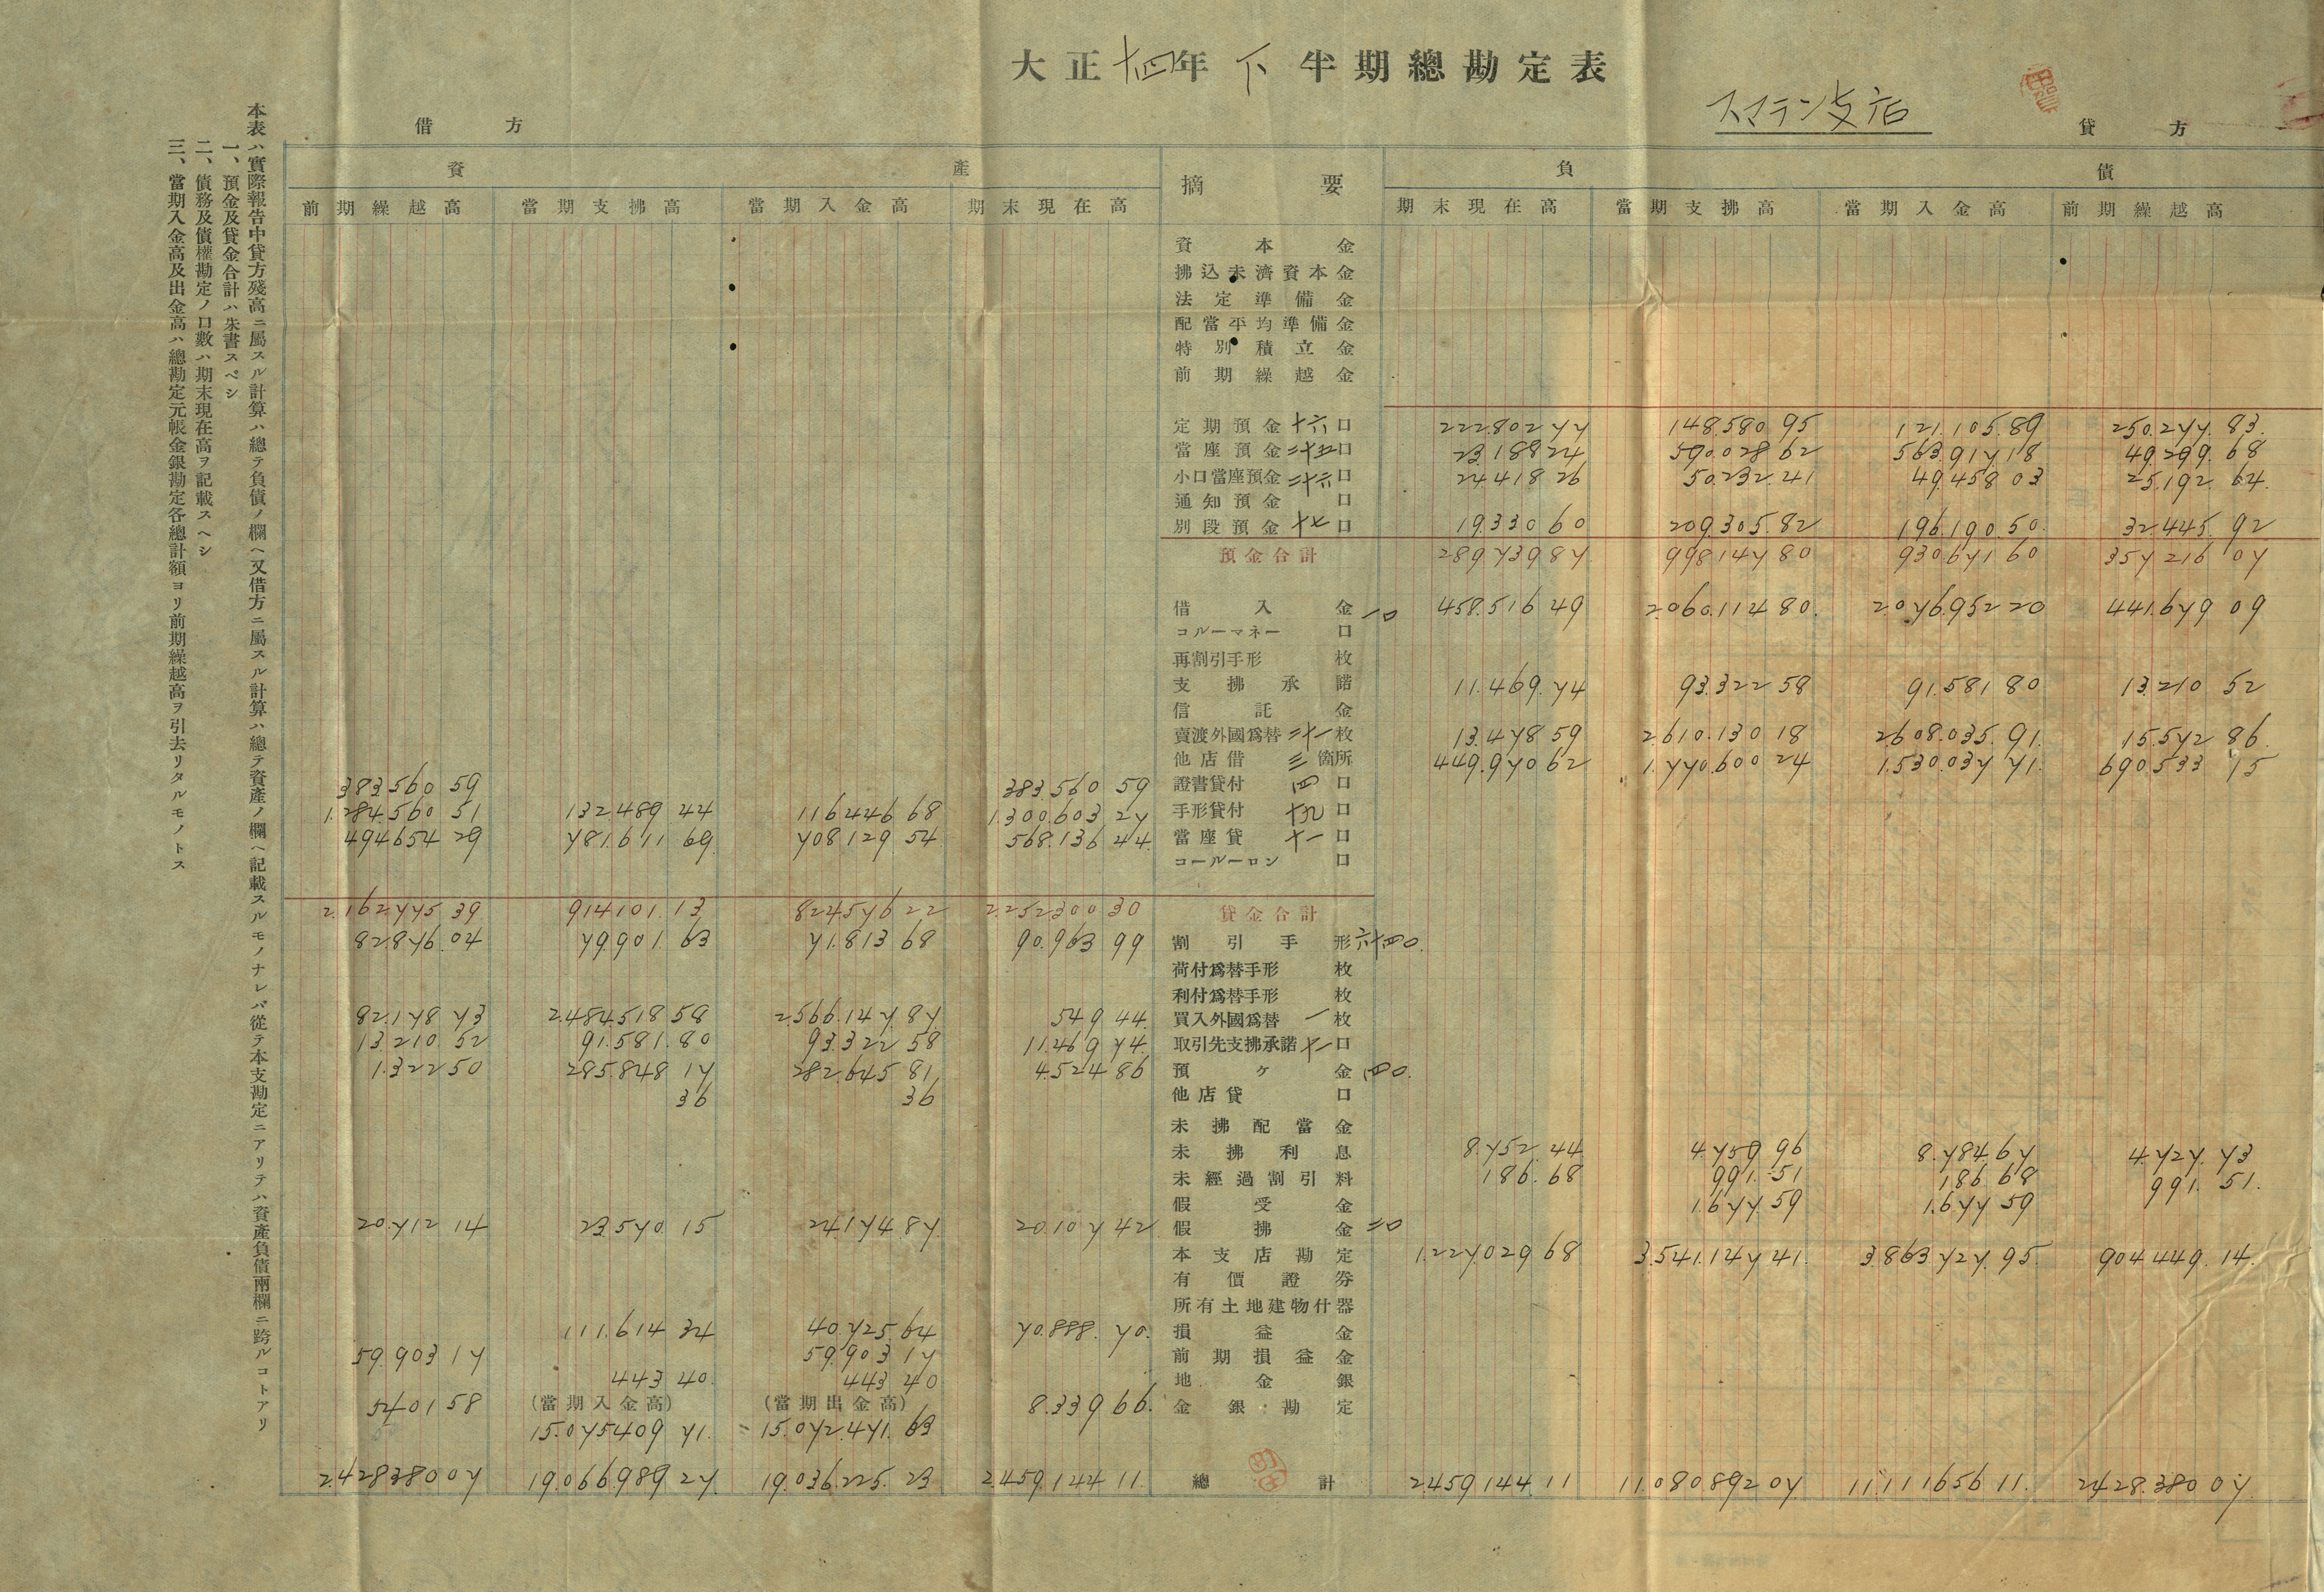 大正十四年下半期總勘定表
スマラン支店
借方
貸方
資產
摘要
負債
前期繰越高 當期支拂高 當期入金高 期末現在高 期末現在高 當期支拂高 當期入金高 前期繰越高
資本金
拂込未濟資本金
法定準備金
配當平均準備金
特別積立金
前期繰越金
定期預金十六口 222.802 77 148.580 95 121.105.89 250.277.83.
當座預金二十五口 23.188 24 590.028 62 563.917 18 49.299.68
小口當座預金二十六口 24.418 26 50.232.41 49.458 03 25.192 64.
通知預金口
別段預金十七口 19.330 60 209.305.82 196.190.50. 32.445.92
預金合計 289.739.87 998147 80 930.671 60 357216 07
借入金一口 458.516 49 2.060.114 80. 2.076.952 20 441.679 09
コルーマネー口
再割引手形枚
支拂承諾 11.469.74 93.322 58 91.581 80 13.210 52
信託金
賣渡外國爲替二十一枚 13.478 59 2.610.130 18 2.608.035.91. 15.572 86.
他店借三箇所 449.970 62 1.770.600 24 1.530.037 71. 690.533 15
383.560 59 383.560 59 證書貸付四口
1.284.560 51 132.489 44 116.446 68 1.300.603 27 手形貸付十九口
494654 29 781.611 69 708129 54 568.136 44. 當座貸十一口
コールーロン口
2.162775 39 914101.13 824576 22 2.252300 30 貸金合計
82876.04 79.901.63 71.813 68 90.963 99 割引手形六十四口.
荷付爲替手形枚
利付爲替手形枚
82.178 73 2.484.518 58 2.566.147.87. 549 44. 買入外國爲替一枚
13.210.52 91.581.80 93.322 58 11.469 74. 取引先支拂承諾十一口
1.322 50 285.848 17 282.645 81. 4.524 86 預ヶ金四口.
36 36 他店貸口
未拂配當金
未拂利息 8.752.44 4.759 96 8.784.67 4.727.73
未經過割引料 186.68 991.51 186 68 991.51.
假受金 1.677.59 1.677 59
20.712 14 23.570.15 24174.87. 20.107 42 假拂金二口
本支店勘定 1.227.029 68 3.541.147 41. 3.863.727.95. 904.449.14.
有價證券
所有土地建物什器
111.614 34 40.725.64 70.888.70. 損益金
59.903 17 59.903 17 前期損益金
443 40. 443 40 地金銀
5401 58 (當期入金高) (當期出金高) 8.339 66. 金銀勘定
15.075409 71. 15.072.471.63
2.428380 07 19.066.989 27. 19.036.225.23 2.459.144 11. 總計 2.459.144.11 11.080892 07. 11.111656 11. 2.428.380 07.
本表ハ實際報告中貸方殘高ニ屬スル計算ハ總テ負債ノ欄ヘ又借方ニ屬スル計算ハ總テ資產ノ欄ヘ記載スルモノナレバ從テ本支勘定ニアリテハ資產負債兩欄ニ跨ルコトアリ
一、預金及貸金合計ハ朱書スベシ
二、債務及債權勘定ノ口數ハ期末現在高ヲ記載スヘシ
三、當期入金高及出金高ハ總勘定元帳金銀勘定各總計額ヨリ前期繰越高ヲ引去リタルモノトス